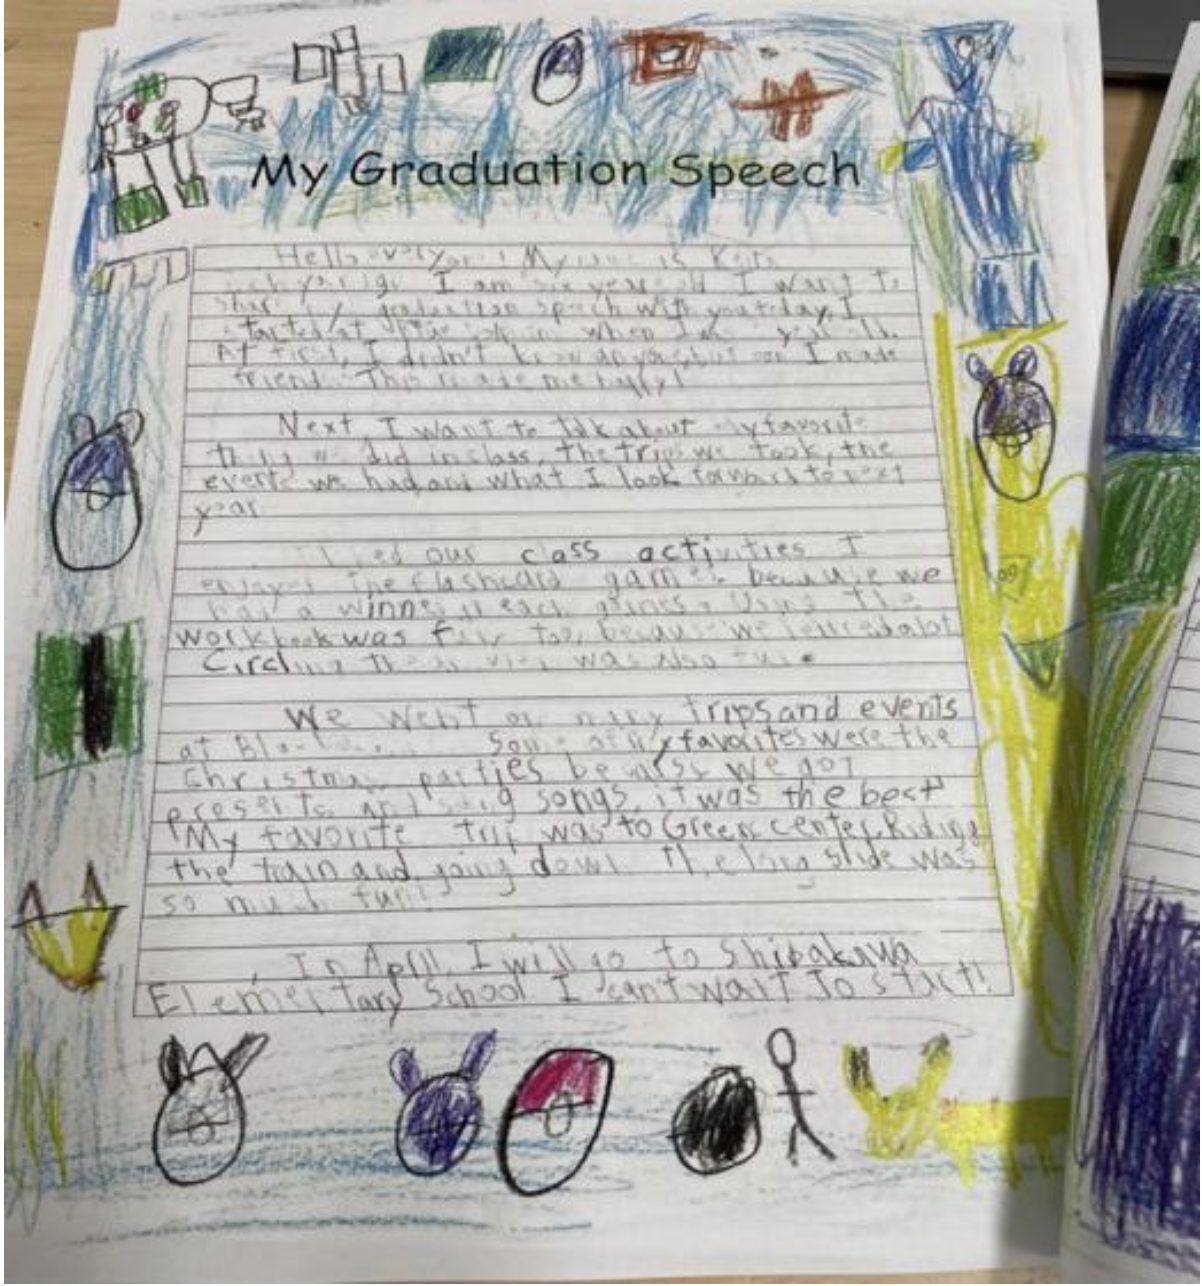 My Graduation Speech
Hello everyone! My name is
I am six years old I want to
share my graduation speech with you today. I
started at when I was years old.
At first, I didn't know anyone but I made
friends. This made me happy!
Next I want to talk about my favorite
things we did in class, the trips we took, the
events we had, and what I look forward to next
year
I liked our class activities I
enjoyed the flashcard games because we
had a winner each Using the
workbook was fun too, because we learned a lot
Circling the was also fun.
We went on many trips and events
at Some of my favorites were the
Christmas parties because we got
presents and sang songs, it was the best
My favorite trip was to Green center. Riding
the train and going down the long slide was
so much fun!
In April, I will go to Shibakawa
Elementary School I can't wait to start!